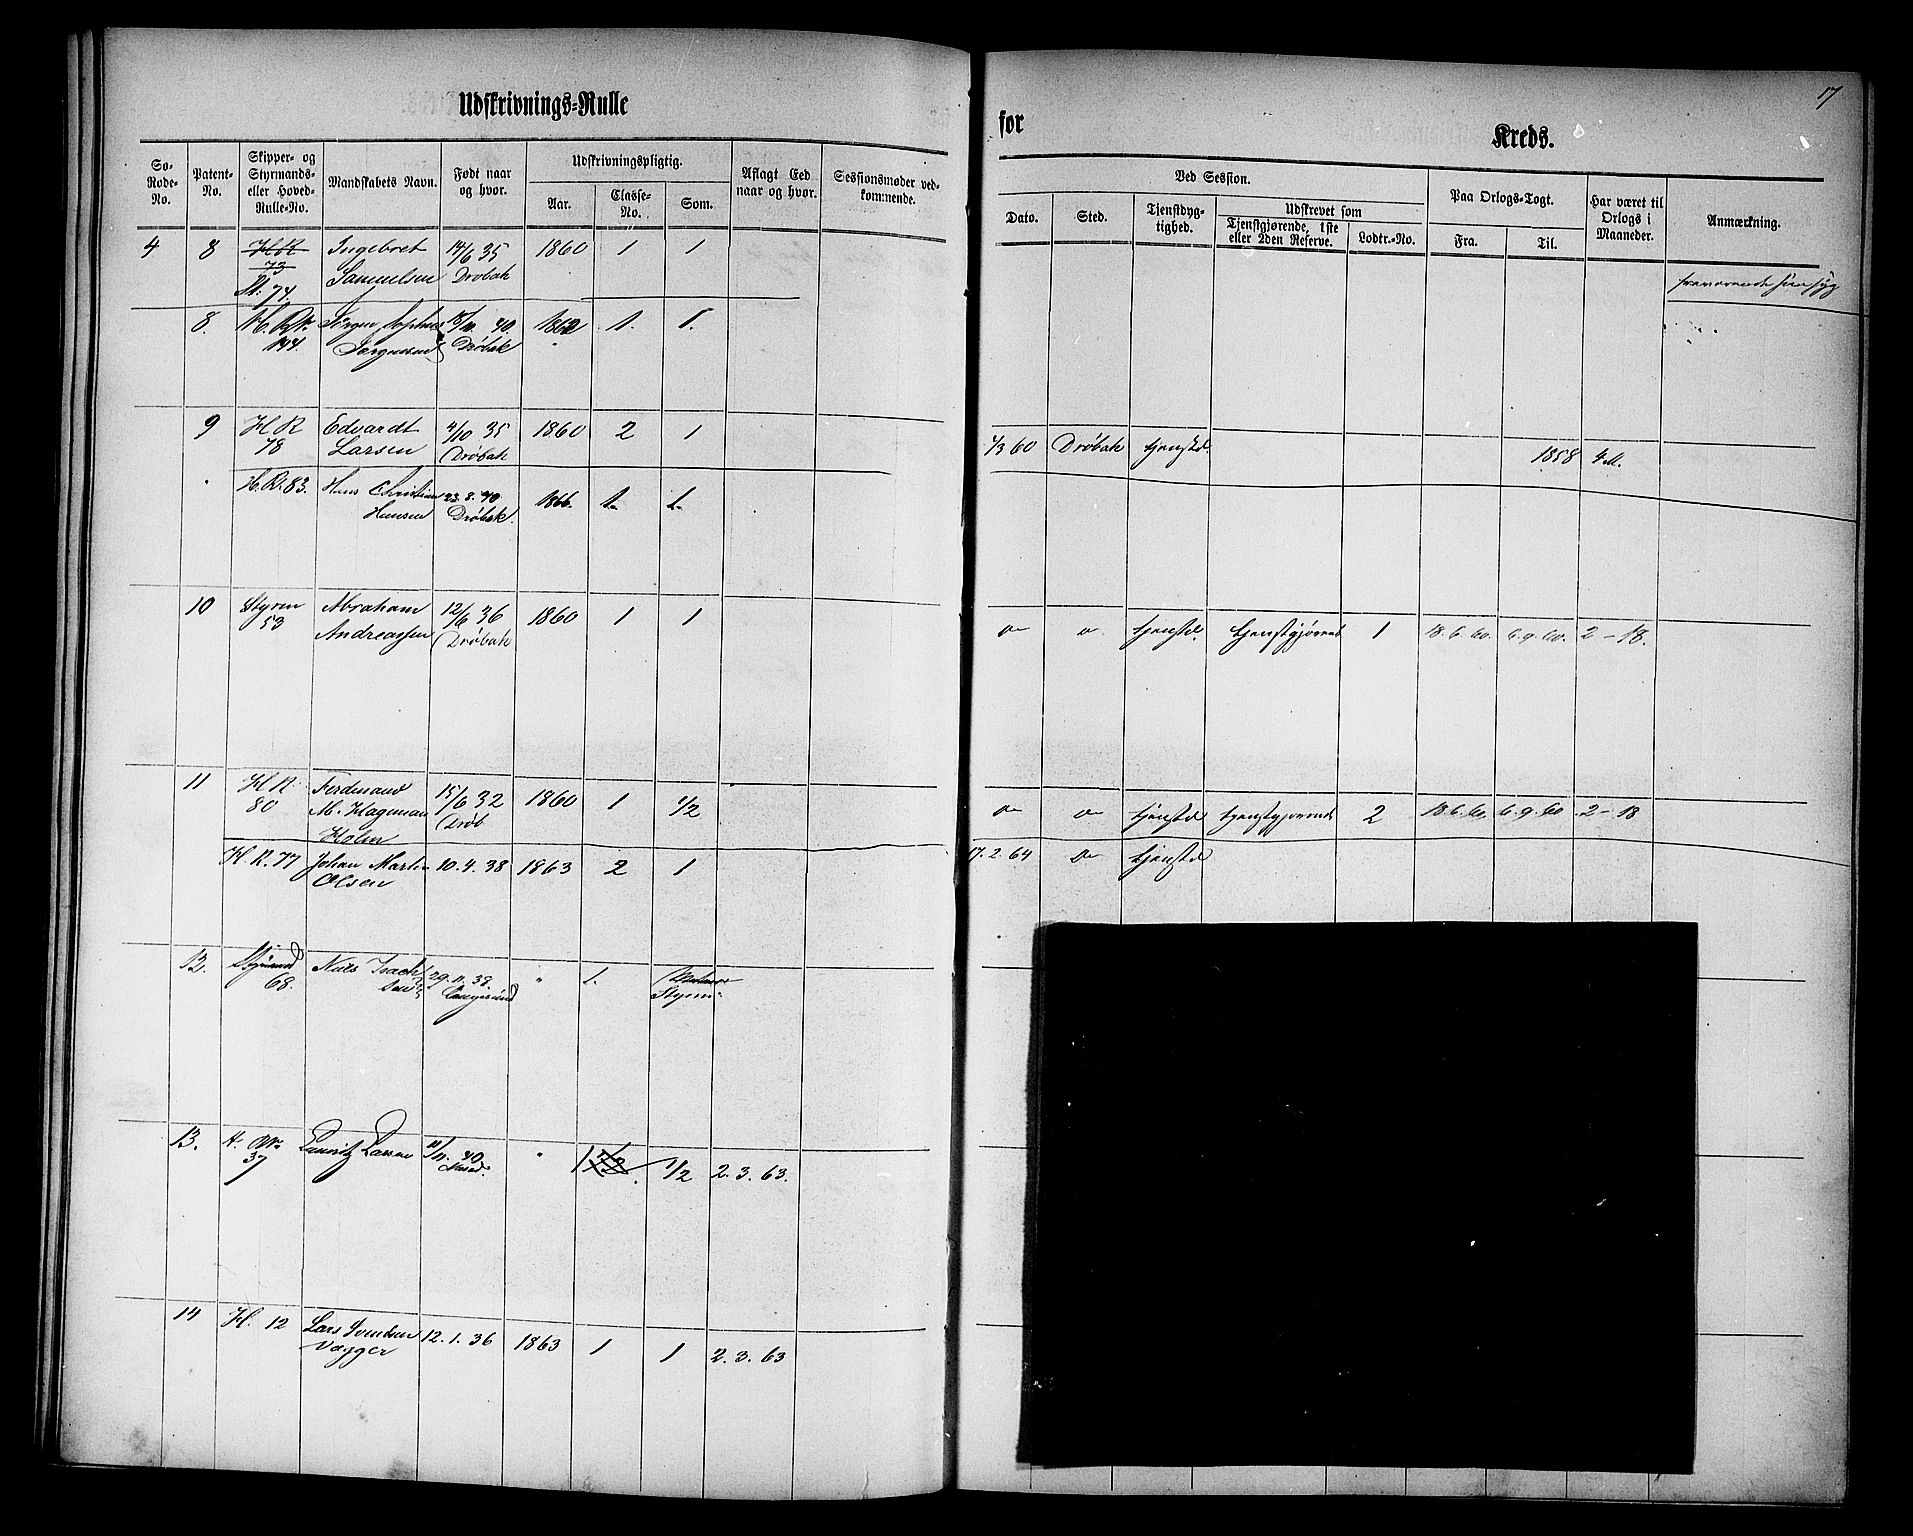 Udskrivnings-Rulle
for
Kreds.
17
So-Rode-No.
Patent-No.
Skipper- og Styrmands- eller Hoved-Rulle-No.
Mandskabets Navn.
Født naar og hvor.
Udskrivningspligtig.
Aar.
Classe-No.
Som.
Aflagt Eed naar og hvor.
Sessionsmøder vedkommende.
Ved Session.
Dato.
Sted.
Tjenstdygtighed.
Udskrevet som
Tjenstgjørende, 1ste eller 2den Reserve.
Lodtr.-No.
Paa Orlogs-Togt.
Fra.
Til.
Har været til Orlogs i Maaneder.
Anmærkning.
4 8 H R Ingebret 14/6 35 1860 1 1
73 Samuelsen Drøbak
St. 74.
8. H. R. Jørgen 40. 1862 1. 1.
144. Jørgensen Drøbak
9 H R Edvardt 4/10 35 1860 2 1
78 Larsen Drøbak
1/3 60 Drøbak tjenstd. 1858 4 M.
H. R. 83. Hans Christian 23. 8. 40 1866. 1. 1.
Hansen Drøbak.
10 Styrm Abraham 12/6 36 1860 1 1
53 Andreassen Drøbak
tjenstd. tjenstgjørend 1 18.6.60. 6.9.60. 2-18.
11 H R Ferdinand 15/6 32 1860 1 1/2
80 M. Hageman Drøb
Holm
tjenstd tjenstgjørende 2 18.6.60. 6.9.60 2-18
H. R. 77 Johan Martin 10. 4. 38 1863 2 1
Olsen
17. 2 64 tjenstd
12. Styrmd Niels Isach 29. 11. 38. " 1.
68. sen Langesund Styrm
13. H. R. Lauritz Larsen 11. 40. " 1 1/2 2. 3. 63.
37
14 H. 12 Lars Svendsen 12. 1. 36 1863 1 1 2. 3. 63
Vagger